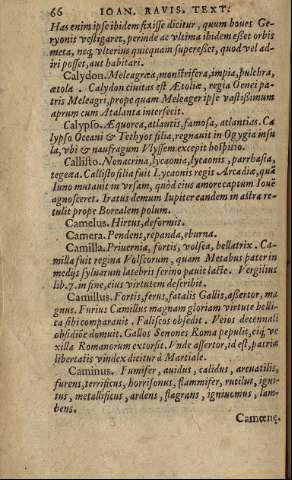 66 IOAN. RAVIS. TEXT.
Has enim ipse ibidem fixisse dicitur, quum boues Ge-
ryonis vestigaret, perinde ac vltima ibidem esset orbis
meta, neq; vlterius quicquam superesset, quod vel ad-
iri posset, aut habitari.
Calydon. Meleagræa, monstrifera, impia, pulchra,
ætola. Calydon ciuitas est Ætoliæ, regia Oenei pa-
tris Meleagri, prope quam Meleager ipse vastissimum
aprum cum Atalanta interfecit.
Calypso. Æquorea, atlantis, famosa, atlantias. Ca
lypso Oceani & Tethyos filia, regnauit in Ogygia insu
la, vbi & naufragum Vlyssem excepit hospitio.
Callisto. Nonacrina, lycaonia, lycaonis, parrhasia,
tegeæa. Callisto filia fuit Lycaonis regis Arcadiæ, quã
Iuno mutauit in vrsam, quòd eius amore captum Iouē
agnosceret. Iratus demum Iupiter eandem in astra re-
tulit prope Borealem polum.
Camelus. Hirtus, deformis.
Camera. Pendens, repanda, eburna.
Camilla. Priuernia, fortis, volsca, bellatrix. Ca-
milla fuit regina Volscorum, quam Metabus pater in
medijs syluarum latebris ferino pauit lacte. Vergilius
lib. 7. in fine, eius virtutem describit.
Camillus. Fortis, ferus, fatalis Gallis, assertor, ma
gnus. Furius Camillus magnam gloriam virtute belli-
ca sibi comparauit. Faliscos obsedit. Veios decennali
obsidiõe domuit. Gallos Senones Roma pepulit, eisq; ve
xilla Romanorum extorsit. Vnde assertor, id est, patriæ
libertatis vindex dicitur à Martiale.
Caminus. Fumifer, auidus, calidus, arcuatilis,
furens, terrificus, horrisonus, flammifer, rutilus, igni-
tus, metallificus, ardens, flagrans, igniuomus, lam-
bens.
Camœnę.